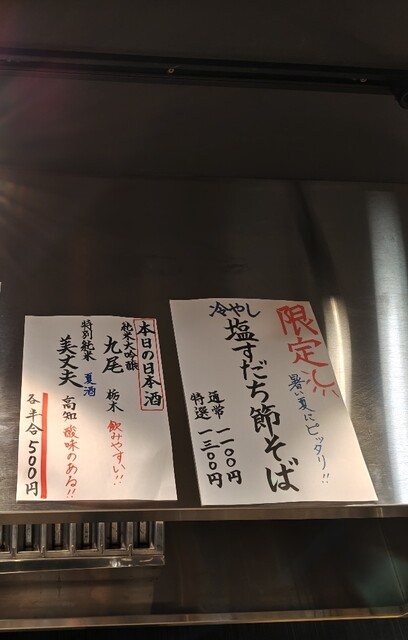 限定
暑い夏にピッタリ!!
冷やし
塩すだち節そば
通常 一一〇〇円
特選 一三〇〇円
本日の日本酒
純米大吟醸
九尾 栃木 飲みやすい!!
特別純米 夏酒
美丈夫 高知 酸味のある!!
各半合 500円